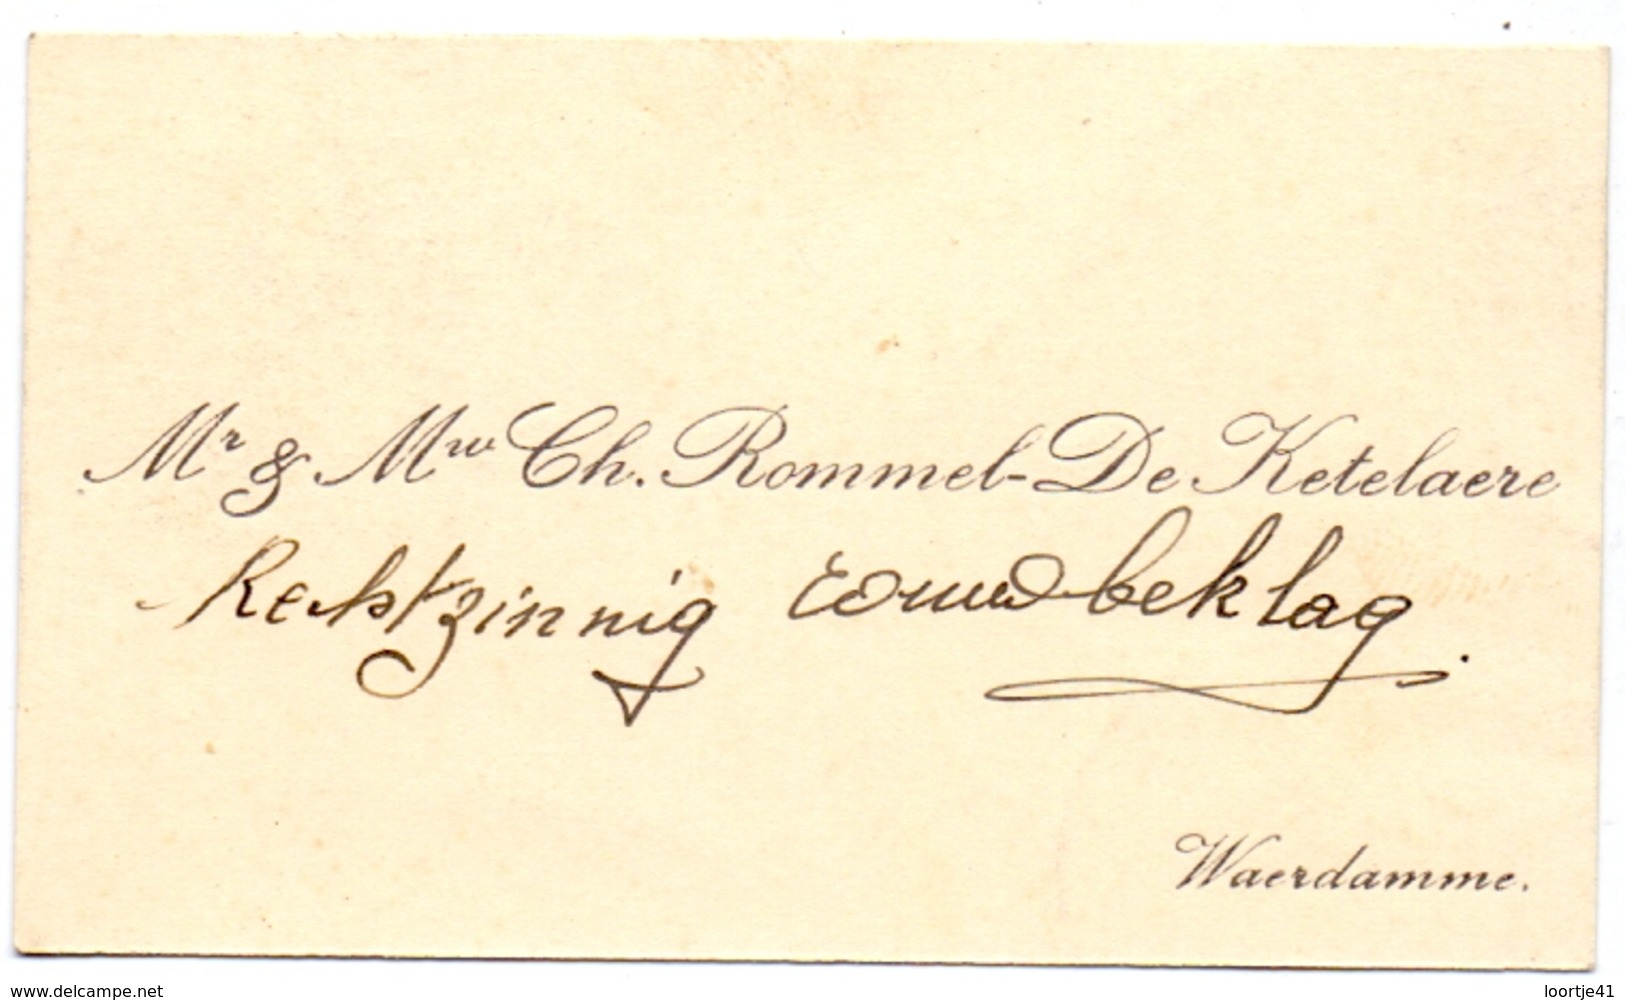 Mr & Mw Ch. Rommel-De Ketelaere
Rechtzinnig rouwbeklag.
Waerdamme.
www.delcampe.net
loortje41